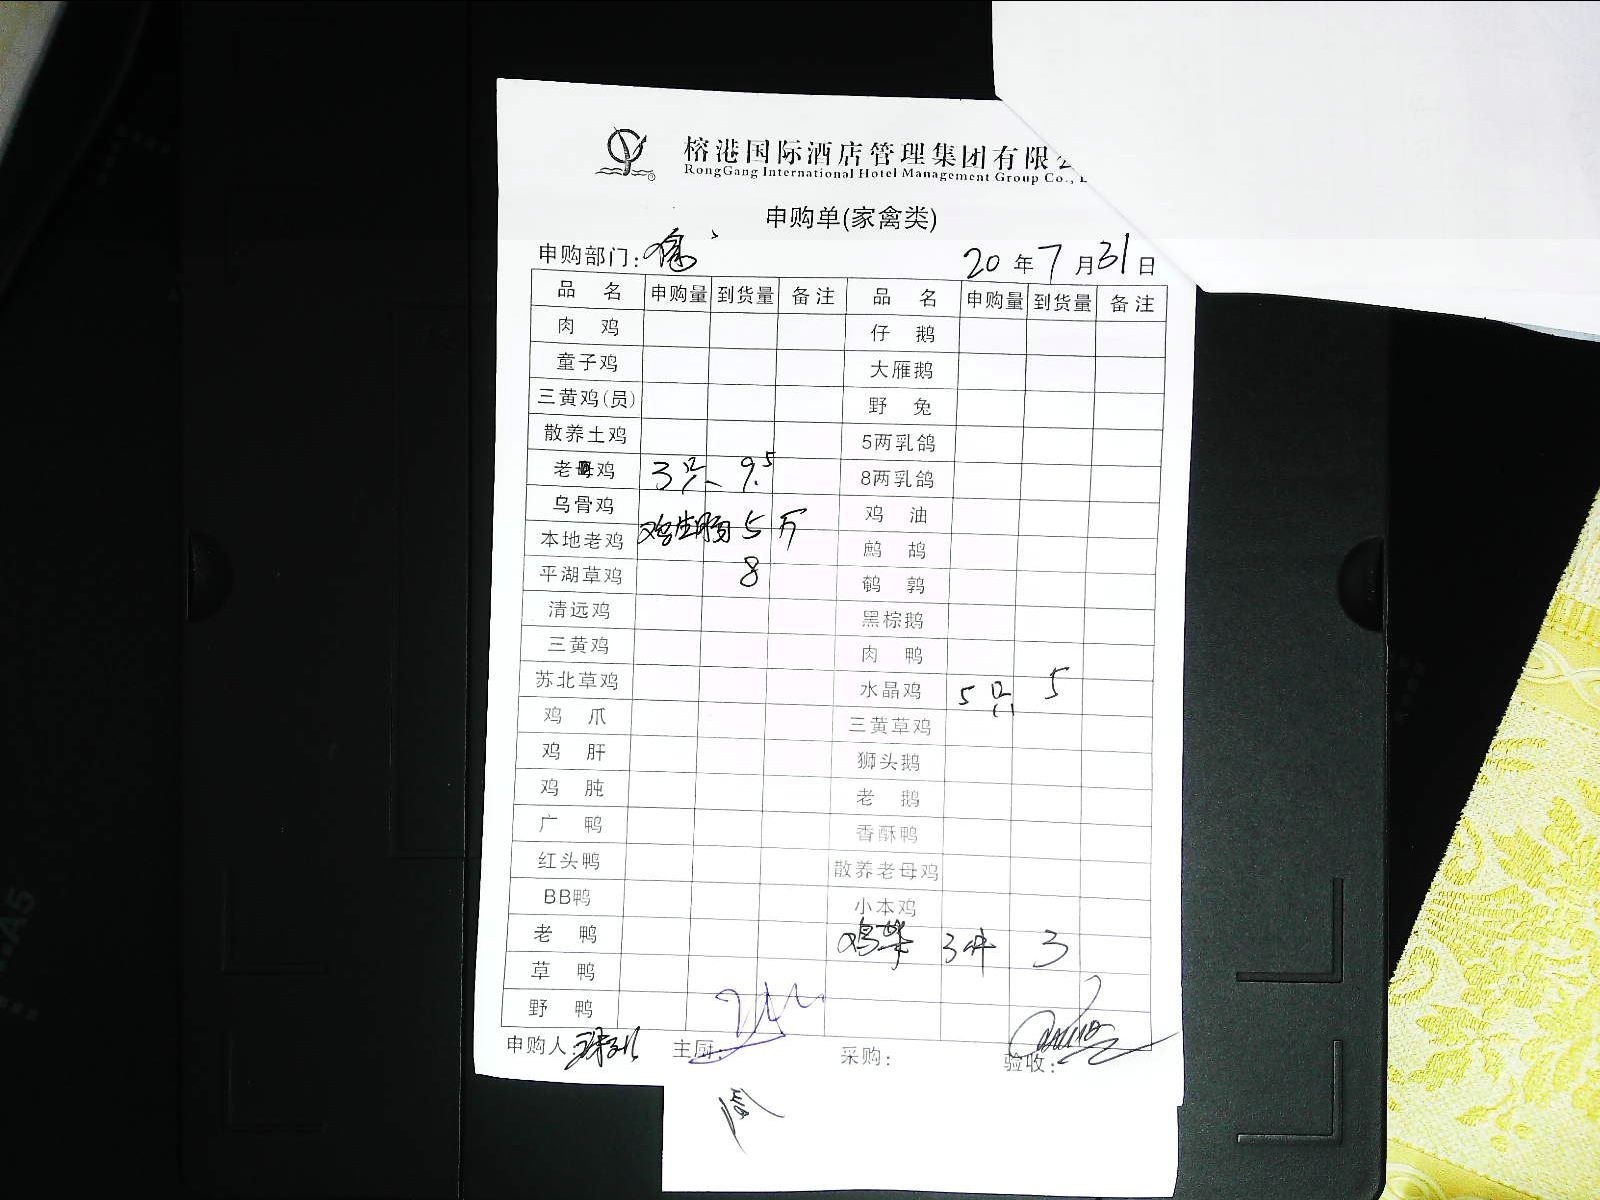 榕港国际酒店管理集团有限
RongGang International Hotel Management Group Co.,
申购单(家禽类)
申购部门: 20 年 7 月 31 日
品 名 申购量 到货量 备注 品 名 申购量 到货量 备注
肉 鸡 仔 鹅
童子鸡 大雁鹅
三黄鸡(员) 野 兔
散养土鸡 5两乳鸽
老母鸡 3只 9.5 8两乳鸽
乌骨鸡 鸡 油
本地老鸡 鸡生肠 5斤 鹧 鸪
平湖草鸡 8 鹌 鹑
清远鸡 黑棕鹅
三黄鸡 肉 鸭
苏北草鸡 水晶鸡 5只 5
鸡 爪 三黄草鸡
鸡 肝 狮头鹅
鸡 肫 老 鹅
广 鸭 香酥鸭
红头鸭 散养老母鸡
BB鸭 小本鸡
老 鸭 3 3
草 鸭
野 鸭
申购人: 主厨: 采购: 验收:
A5